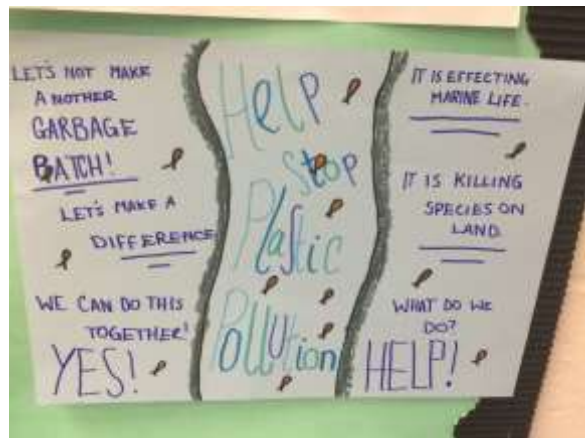 LET'S NOT MAKE
ANOTHER
GARBAGE
BATCH!
LET'S MAKE A
DIFFERENCE
WE CAN DO THIS
TOGETHER!
YES!
Help
stop
Plastic
Pollution
IT IS EFFECTING
MARINE LIFE.
IT IS KILLING
SPECIES ON
LAND
WHAT DO WE
DO?
HELP!